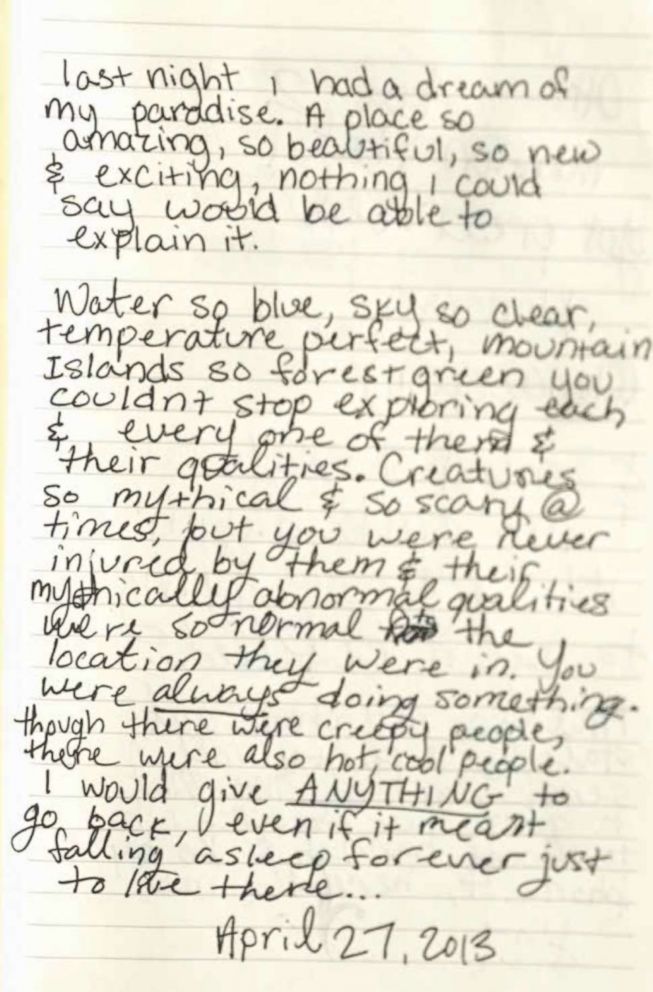 last night i had a dream of
my paradise. A place so
amazing, so beautiful, so new
& exciting, nothing i could
say would be able to
explain it.
Water so blue, sky so clear,
temperature perfect, mountain
Islands so forest green you
couldnt stop exploring each
& every one of them &
their qualities. Creatures
so mythical & so scary @
times, but you were never
injured by them & their
mythically abnormal qualities
were so normal the
location they were in. You
were always doing something.
though there were creepy people,
there were also hot, cool people.
I would give ANYTHING to
go back, even if it meant
falling asleep forever just
to live there...
April 27, 2013